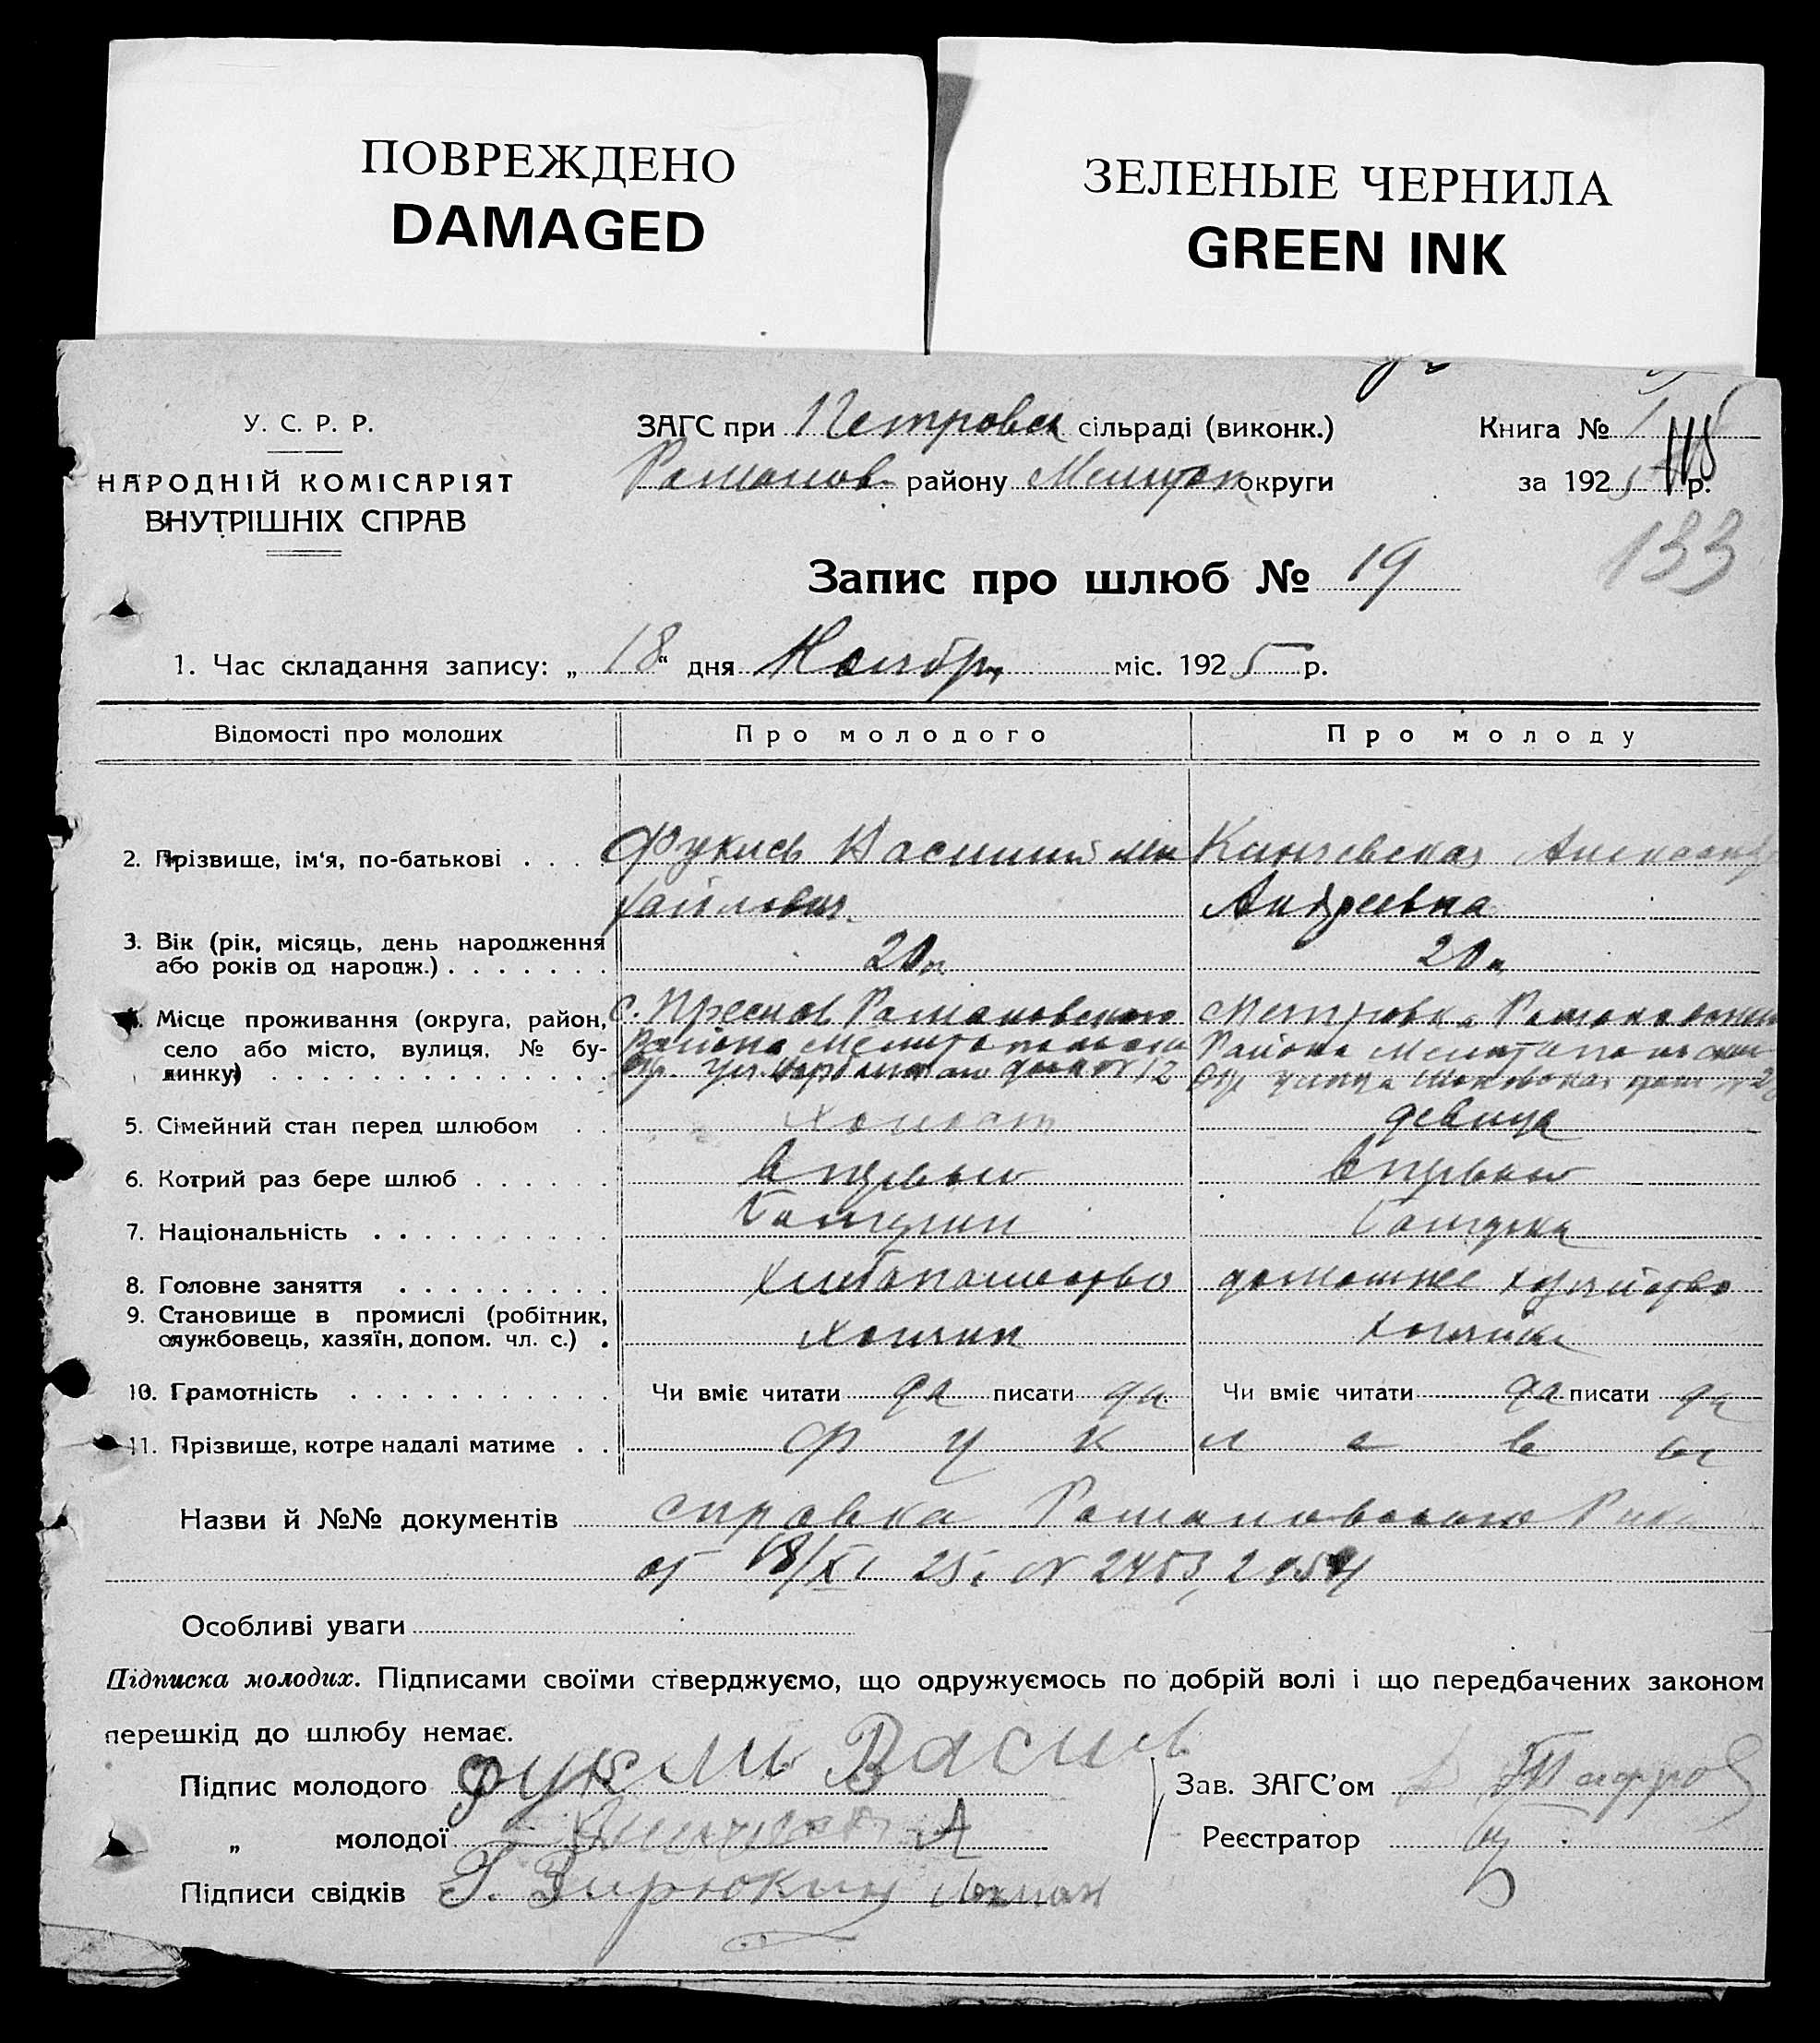 ПОВРЕЖДЕНО
DAMAGED
ЗЕЛЕНЫЕ ЧЕРНИЛА
GREEN INK
У. С. Р. Р.
НАРОДНІЙ КОМІСАРІЯТ
ВНУТРІШНІХ СПРАВ
ЗАГС при Петровск сільраді (виконк.)
Романов району Мелитоп округи
Книга № 1
118
за 1925 р.
133
Запис про шлюб № 19
1. Час складання запису: „ 18 “ дня Ноября міс. 1925 р.
Відомості про молодих
Про молодого
Про молоду
2. Прізвище, ім'я, по-батькові . . .
Василий Ми
хайлович
Александр
Андреевна
3. Вік (рік, місяць, день народження
або років од народж.) . . . . . . .
20 л
20 л
4. Місце проживання (округа, район,
село або місто, вулиця, № бу-
динку) . . . . . . . . . . . . . .
с. Романовского
Района Мелитопольск
Окр. ул. дом № 12
Петровка Романовского
Района Мелитопольского
Окр улица дом № 2
5. Сімейний стан перед шлюбом . .
холост
девица
6. Котрий раз бере шлюб . . . . . .
в первый
в первый
7. Національність . . . . . . . . . .
Болгарин
Болгарка
8. Головне заняття . . . . . . . . .
хлебопашество
домашнее хозяйство
9. Становище в промислі (робітник,
службовець, хазяїн, допом. чл. с.) .
хозяин
хозяйка
10. Грамотність . . . . . . . . . . .
Чи вміє читати да писати да
Чи вміє читати да писати да
11. Прізвище, котре надалі матиме . .
Ф у к л е в ы
Назви й №№ документів справка Романовского Рика
от 18/XI 25 г. № 2453, 2454
Особливі уваги
Підписка молодих. Підписами своїми стверджуємо, що одружуємось по добрій волі і що передбачених законом
перешкід до шлюбу немає.
Підпис молодого
Васил
„ молодої А
Підписи свідків Г. Бирюкин
Зав. ЗАГС'ом
Реєстратор